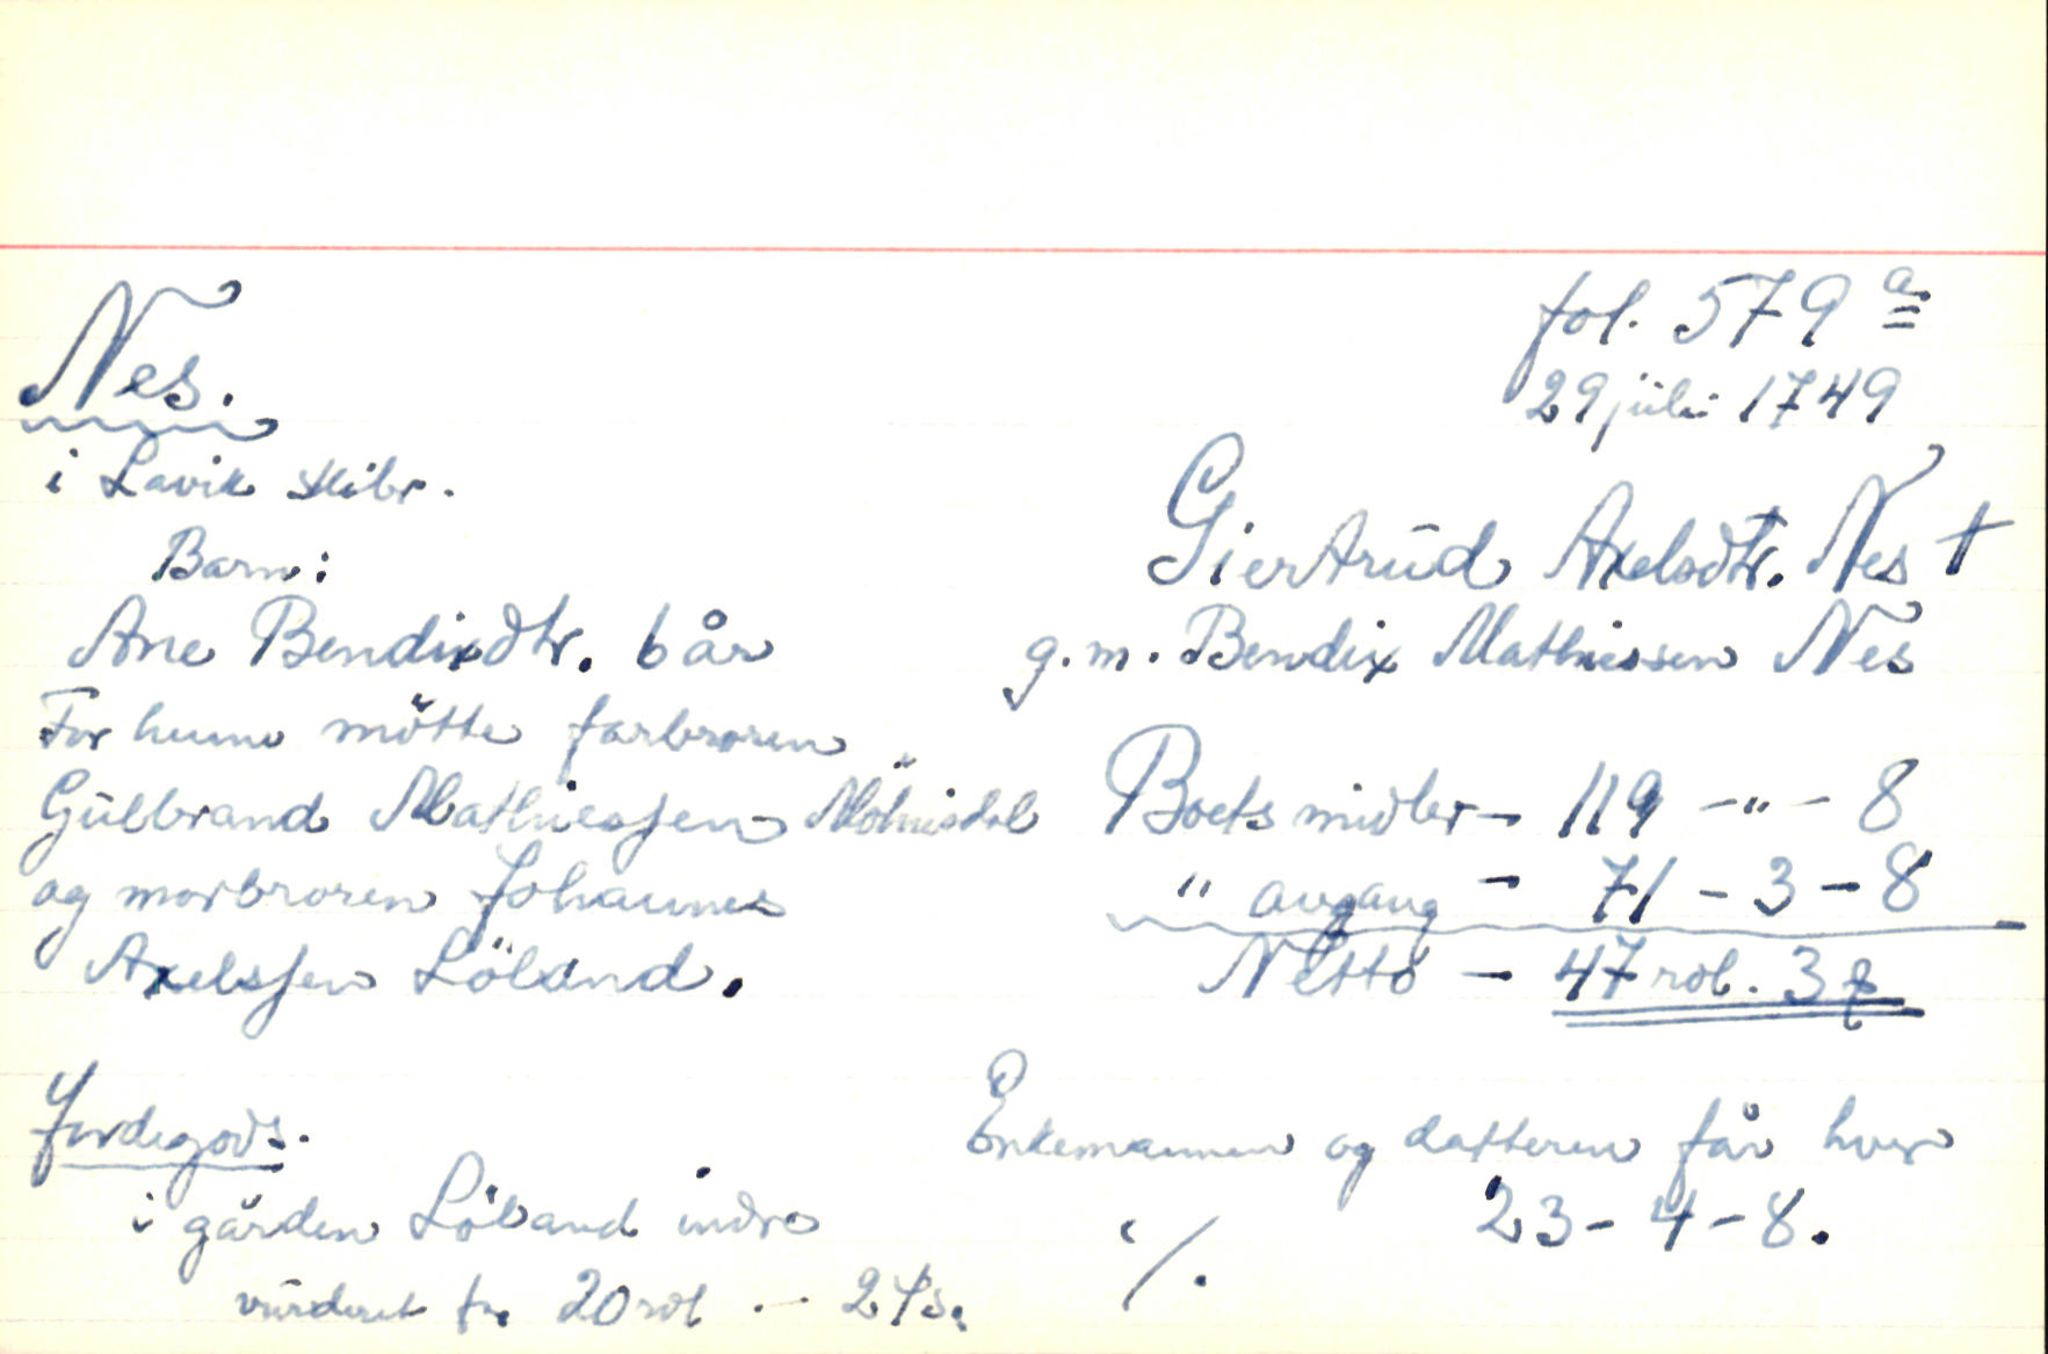 Nes.
i Lavik skibr.
fol. 579 a
29 juli 1749
Giertrud Axelsdtr. Nes †
g.m. Bendix Mathiessen Nes
Barn:
Ane Bendixdtr. 6 år
For henne mötte farbroren
Gulbrand Mathiessen
og morbroren Johannes
Axelssen Löland.
Boets midler - 119 - " - 8
" avgang - 71 - 3 - 8
Netto - 47 rdl. 3
Jordegods.
i gården Löland indre
vurderet for 20 rdl
Enkemannen og datteren får hver
23 - 4 - 8.